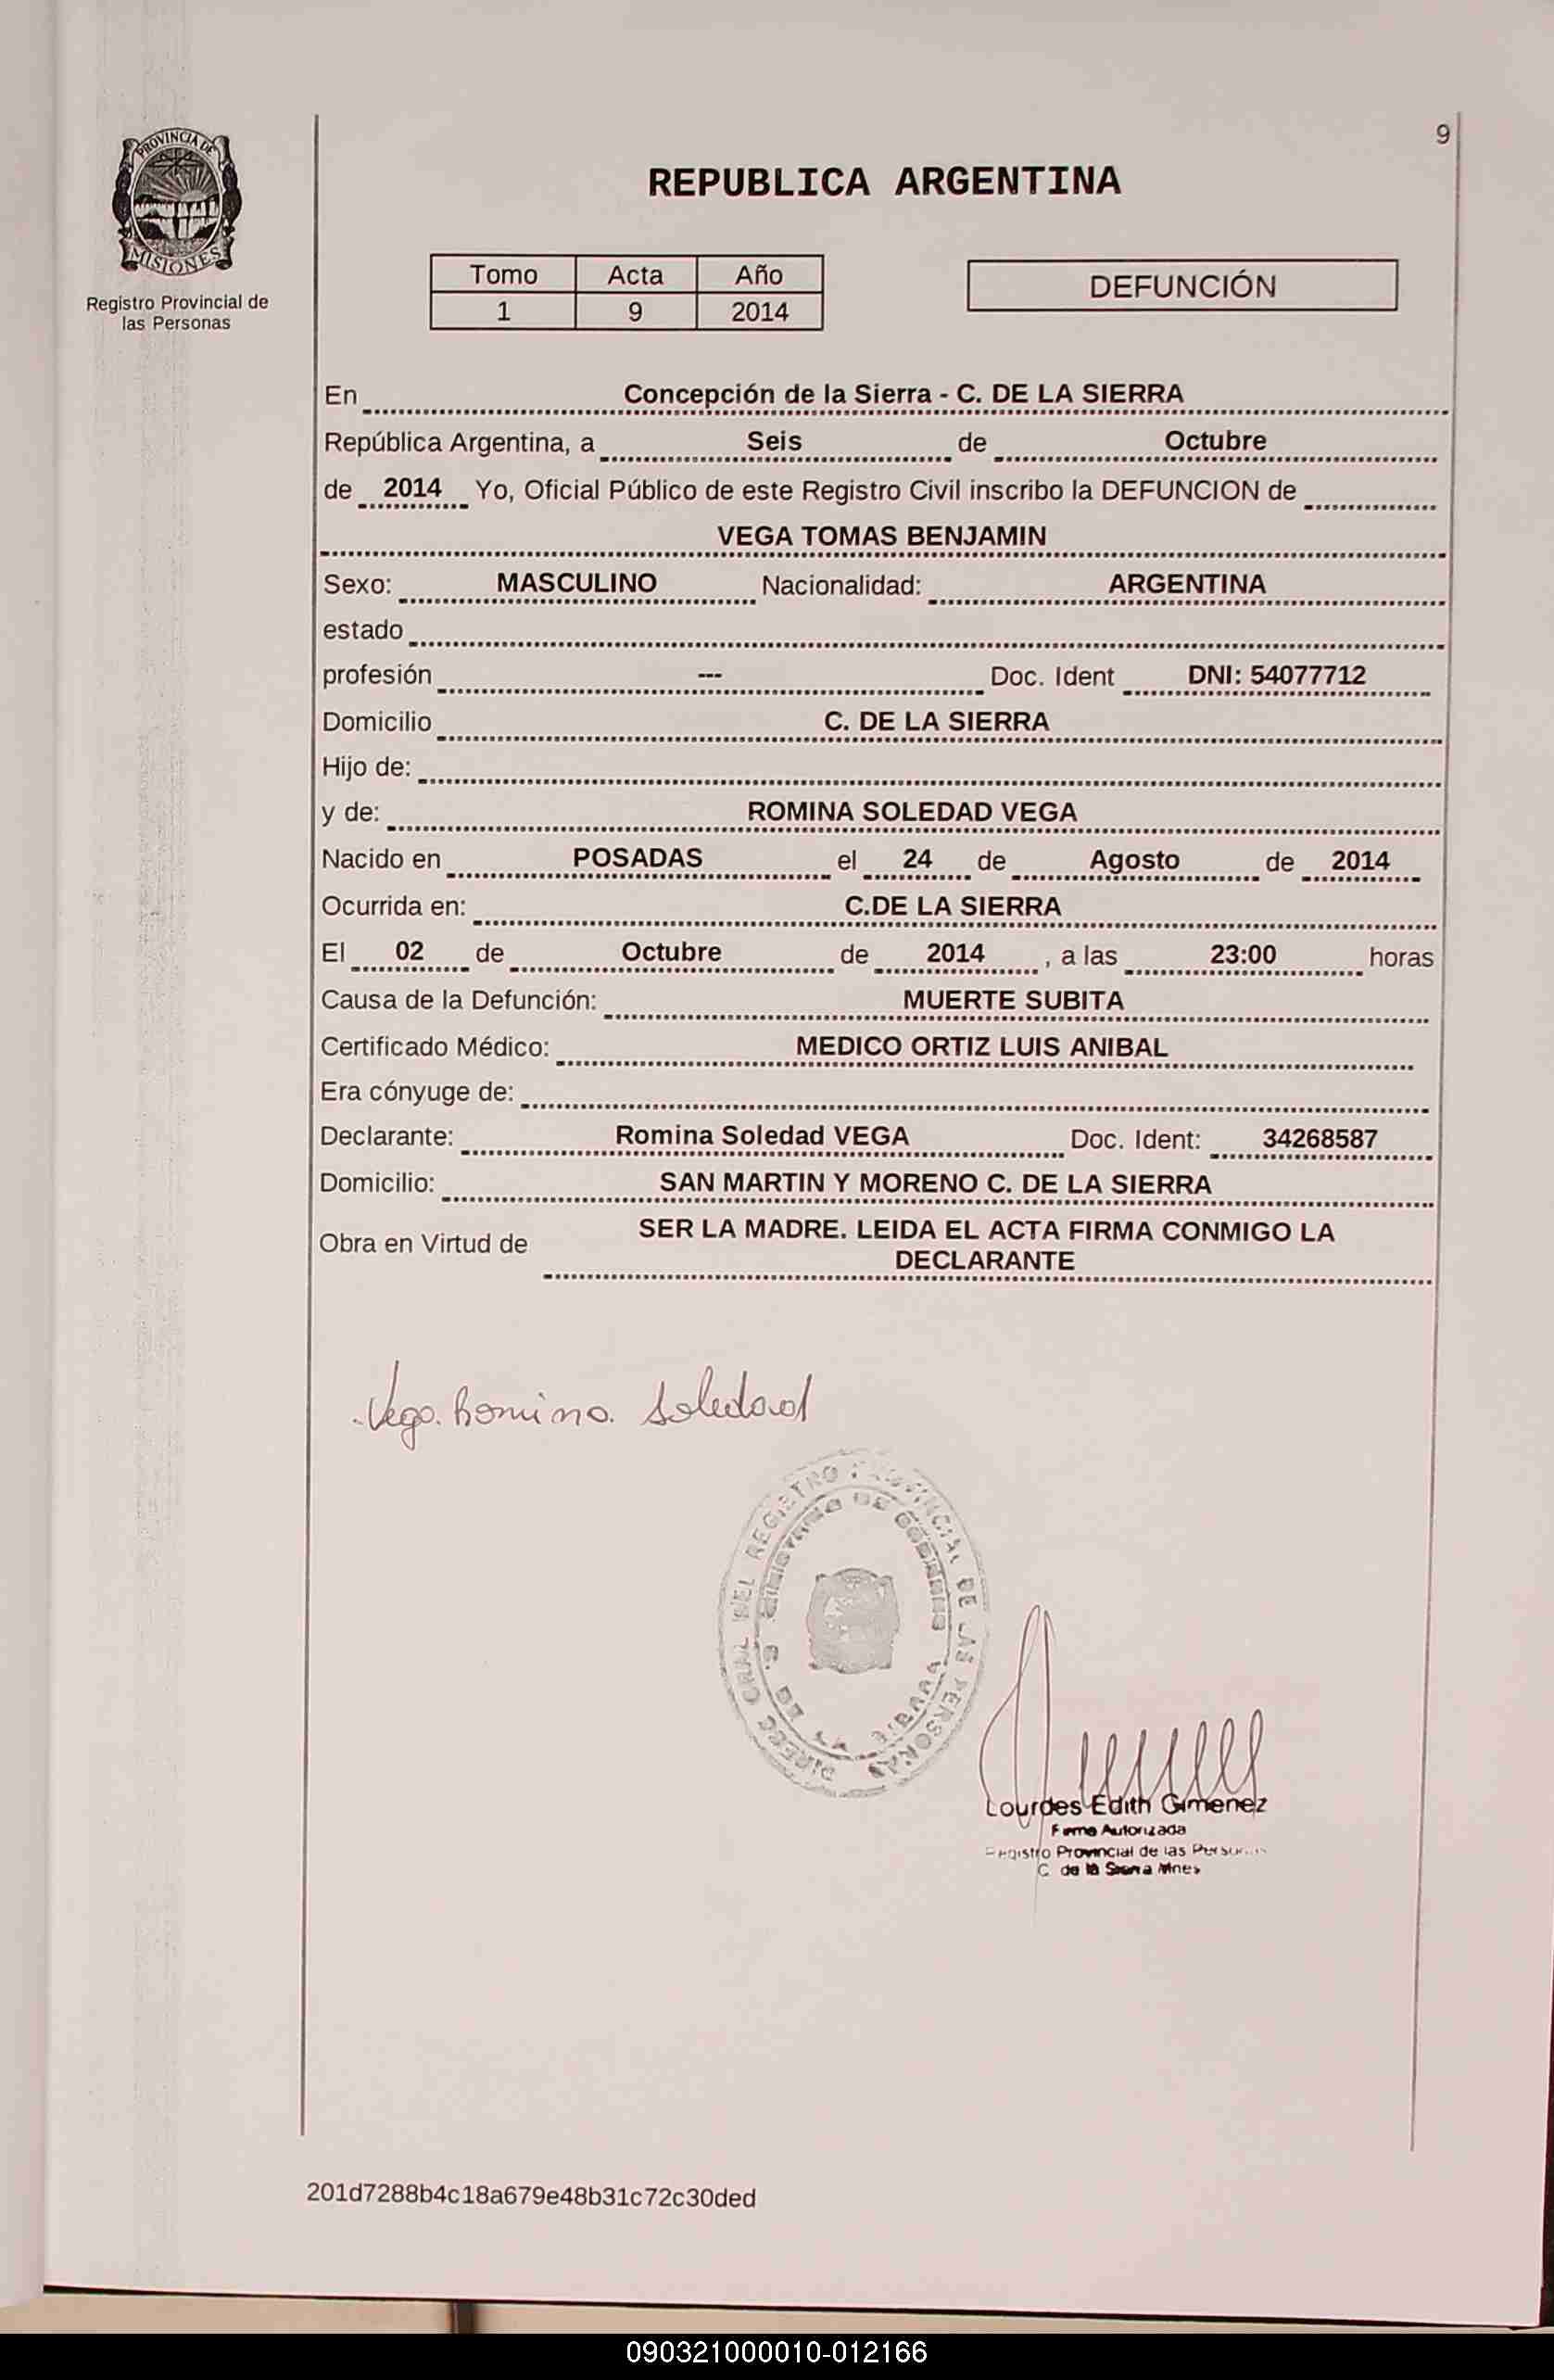 9
PROVINCIA DE
MISIONES
Registro Provincial de
las Personas
REPUBLICA ARGENTINA
Tomo Acta Año
1 9 2014
DEFUNCIÓN
En Concepción de la Sierra - C. DE LA SIERRA
República Argentina, a Seis de Octubre
de 2014 Yo, Oficial Público de este Registro Civil inscribo la DEFUNCION de
VEGA TOMAS BENJAMIN
Sexo: MASCULINO Nacionalidad: ARGENTINA
estado
profesión --- Doc. Ident DNI: 54077712
Domicilio C. DE LA SIERRA
Hijo de:
y de: ROMINA SOLEDAD VEGA
Nacido en POSADAS el 24 de Agosto de 2014
Ocurrida en: C.DE LA SIERRA
El 02 de Octubre de 2014 , a las 23:00 horas
Causa de la Defunción: MUERTE SUBITA
Certificado Médico: MEDICO ORTIZ LUIS ANIBAL
Era cónyuge de:
Declarante: Romina Soledad VEGA Doc. Ident: 34268587
Domicilio: SAN MARTIN Y MORENO C. DE LA SIERRA
Obra en Virtud de SER LA MADRE. LEIDA EL ACTA FIRMA CONMIGO LA
DECLARANTE
Vega Romina Soledad
DIRECC GRAL DEL REGISTRO PROVINCIAL DE LAS PERSONAS
MINISTERIO DE GOBIERNO
Lourdes Edith Gimenez
Firma Autorizada
Registro Provincial de las Personas
C. de la Sierra Mnes
201d7288b4c18a679e48b31c72c30ded
090321000010-012166